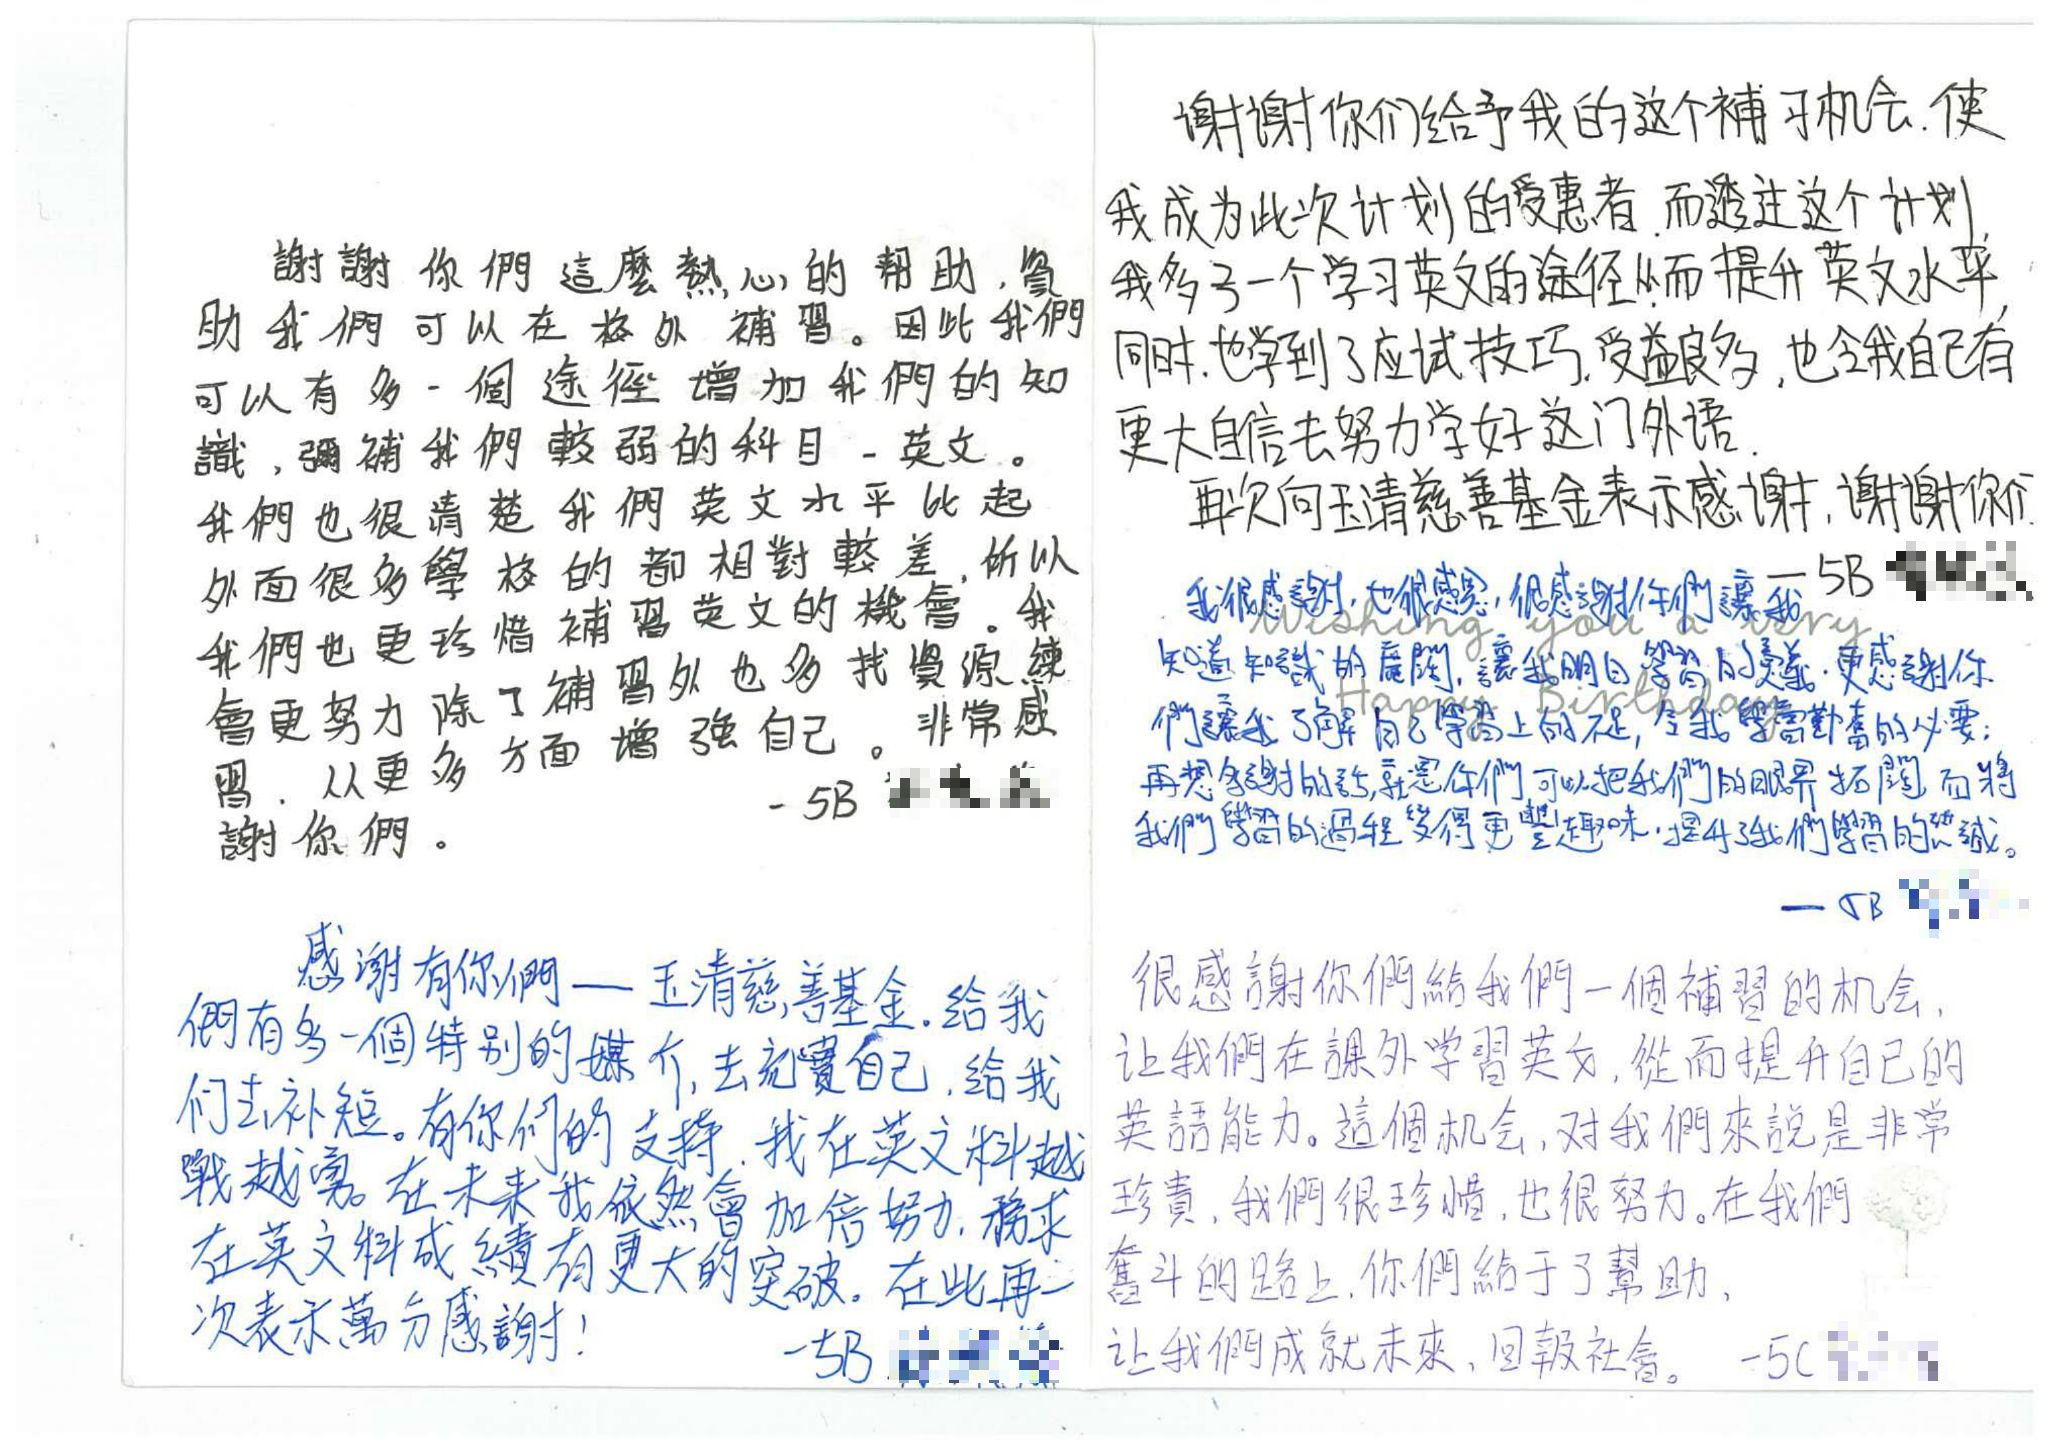 謝謝你們這麼熱心的帮助，資
助我們可以在校外補習。因此我們
可以有多一個途徑增加我們的知
識，彌補我們較弱的科目－英文。
我們也很清楚我們英文水平比起
外面很多學校的都相對較差，所以
我們也更珍惜補習英文的機會。我
會更努力除了補習外也多找資源練
習，从更多方面增強自己。非常感
謝你們。
－5B
感谢有你們——玉清慈善基金。给我
們有多一個特别的媒介，去充實自己，给我
们去补短。有你们的支持，我在英文科越
戰越勇。在未来我依然會加倍努力，務求
在英文科成績有更大的突破。在此再一
次表示萬分感謝！
－5B
谢谢你们给予我的这个補习机会，使
我成为此次计划的受惠者，而透过这个计划，
我多了一个学习英文的途径从而提升英文水平，
同时，也学到了应试技巧，受益良多，也令我自己有
更大自信去努力学好这门外语．
再次向玉清慈善基金表示感谢，谢谢你们
—5B
我很感謝，也很感恩，很感謝你們讓我
Wishing you a very
知道知識的廣闊，讓我明白學習的意義，更感謝你
Happy Birthday
們讓我了解自己學習上的不足，令我學會勤奮的必要；
再想多謝的話，就是你們可以把我們的眼界拓闊，而將
我們學習的過程變得更豐趣味，提升了我們學習的熱誠。
—5B
很感謝你們給我們一個補習的机会，
让我們在課外学習英文，從而提升自己的
英語能力。這個机会，对我們來説是非常
珍貴，我們很珍惜，也很努力。在我們
奮斗的路上，你們給于了幫助，
让我們成就未來，回報社會。
－5C